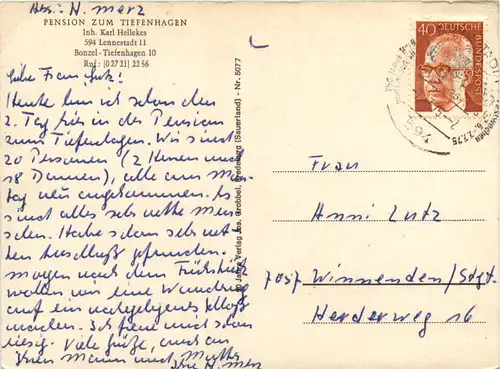 Abs.: H. Merz
PENSION ZUM TIEFENHAGEN
Inh. Karl Hellekes
594 Lennestadt 11
Bonzel - Tiefenhagen 10
Ruf: (0 27 21) 22 56
Liebe Frau Lutz!
Heute bin ich schon den
2. Tag hier in der Pension
zum Tiefenhagen. Wir sind
20 Personen (2 Herren und
18 Damen), alle am Mon-
tag neu angekommen. Es
sind alles sehr nette Men-
schen. Habe schon sehr net-
ten Anschluß gefunden.
Morgen nach dem Frühstück
wollen wir eine Wanderung
auf ein nahgelegenes Schloß
machen. Ich freue mich schon
riesig. Viele Grüße, auch an
Ihren Mann und Mutter
Ihre H. Merz
Jahre Verlag Jos. Grobbel, Fredeburg (Sauerland) - Nr. 5077
40 DEUTSCHE BUNDESPOST
7.7.75
Frau
Anni Lutz
7057 Winnenden/Stgt.
Herderweg 16